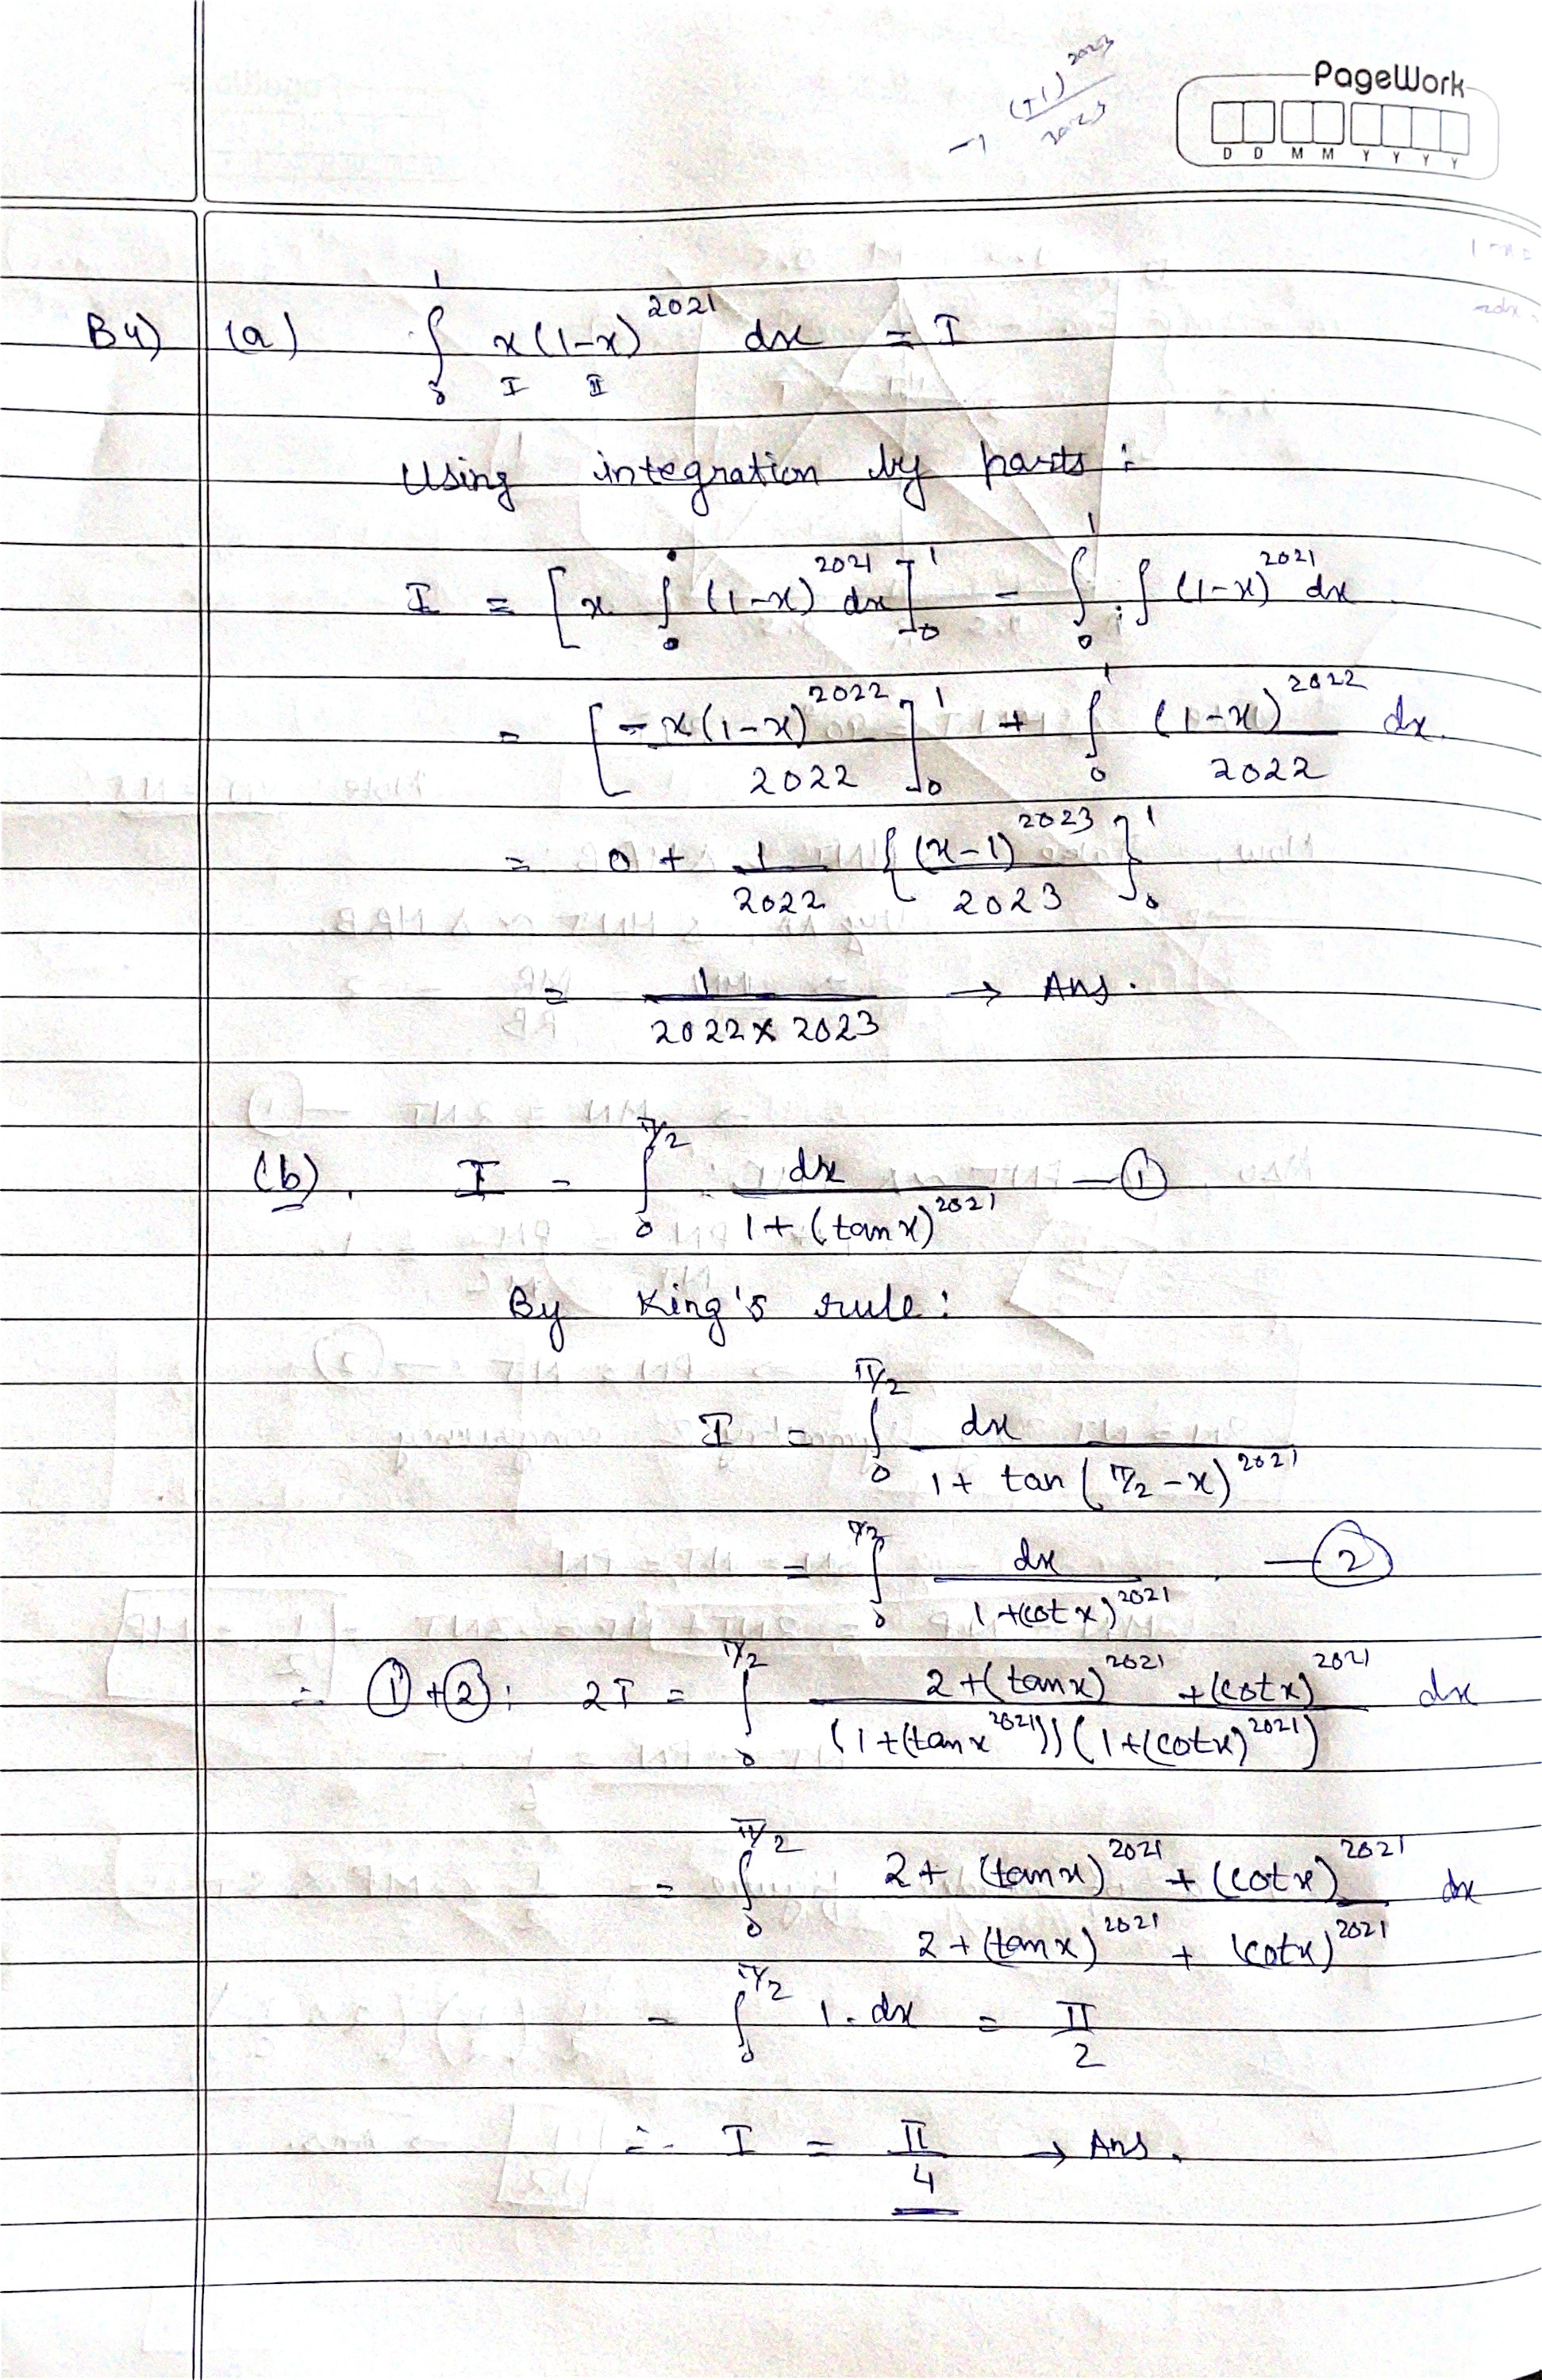 PageWork
D D M M Y Y Y Y
-1 (-1)^2023 / 2023
B4) (a) ∫_0^1 x(1-x)^2021 dx = I
I II
Using integration by parts :
I = [x ∫ (1-x)^2021 dx]_0^1 - ∫_0^1 ∫ (1-x)^2021 dx
= [-x(1-x)^2022 / 2022]_0^1 + ∫_0^1 (1-x)^2022 / 2022 dx.
= 0 + 1/2022 {(x-1)^2023 / 2023}_0^1
= 1 / 2022 × 2023 → Ans.
(b). I = ∫_0^{π/2} dx / 1+(tanx)^2021 — ①
By King's rule :
I = ∫_0^{π/2} dx / 1+ tan(π/2 - x)^2021
= ∫_0^{π/2} dx / 1+(cotx)^2021 — ②
∴ ①+②: 2I = ∫_0^{π/2} 2+(tanx)^2021 +(cotx)^2021 / (1+(tanx^2021))(1+(cotx)^2021) dx
= ∫_0^{π/2} 2+ (tanx)^2021 + (cotx)^2021 / 2+(tanx)^2021 + (cotx)^2021 dx
= ∫_0^{π/2} 1. dx = π/2
∴ I = π/4 → Ans.